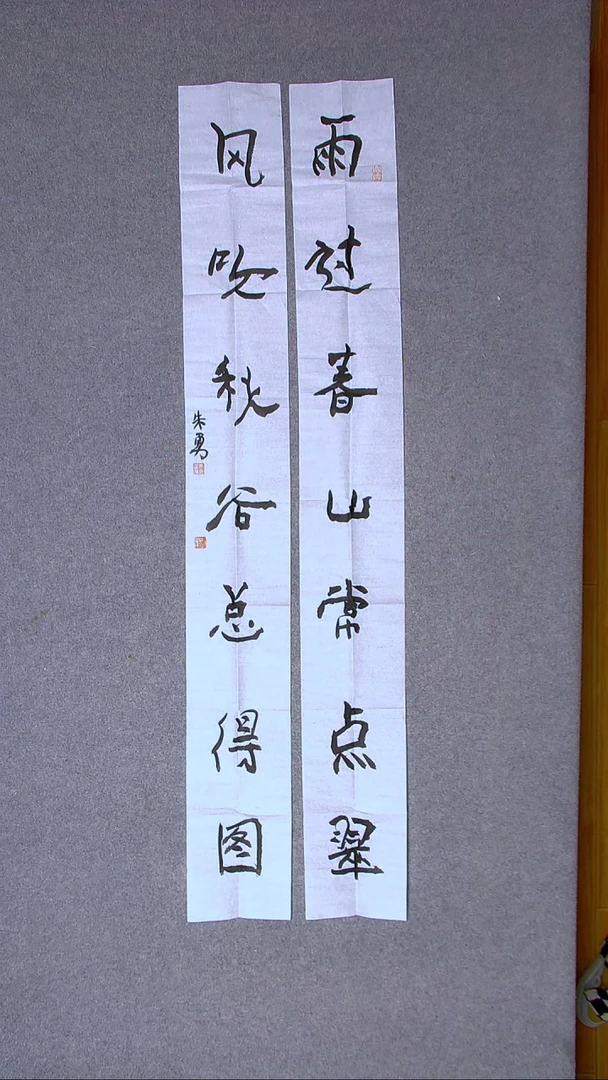 雨过春山常点翠
风吹秋谷总得图
朱勇